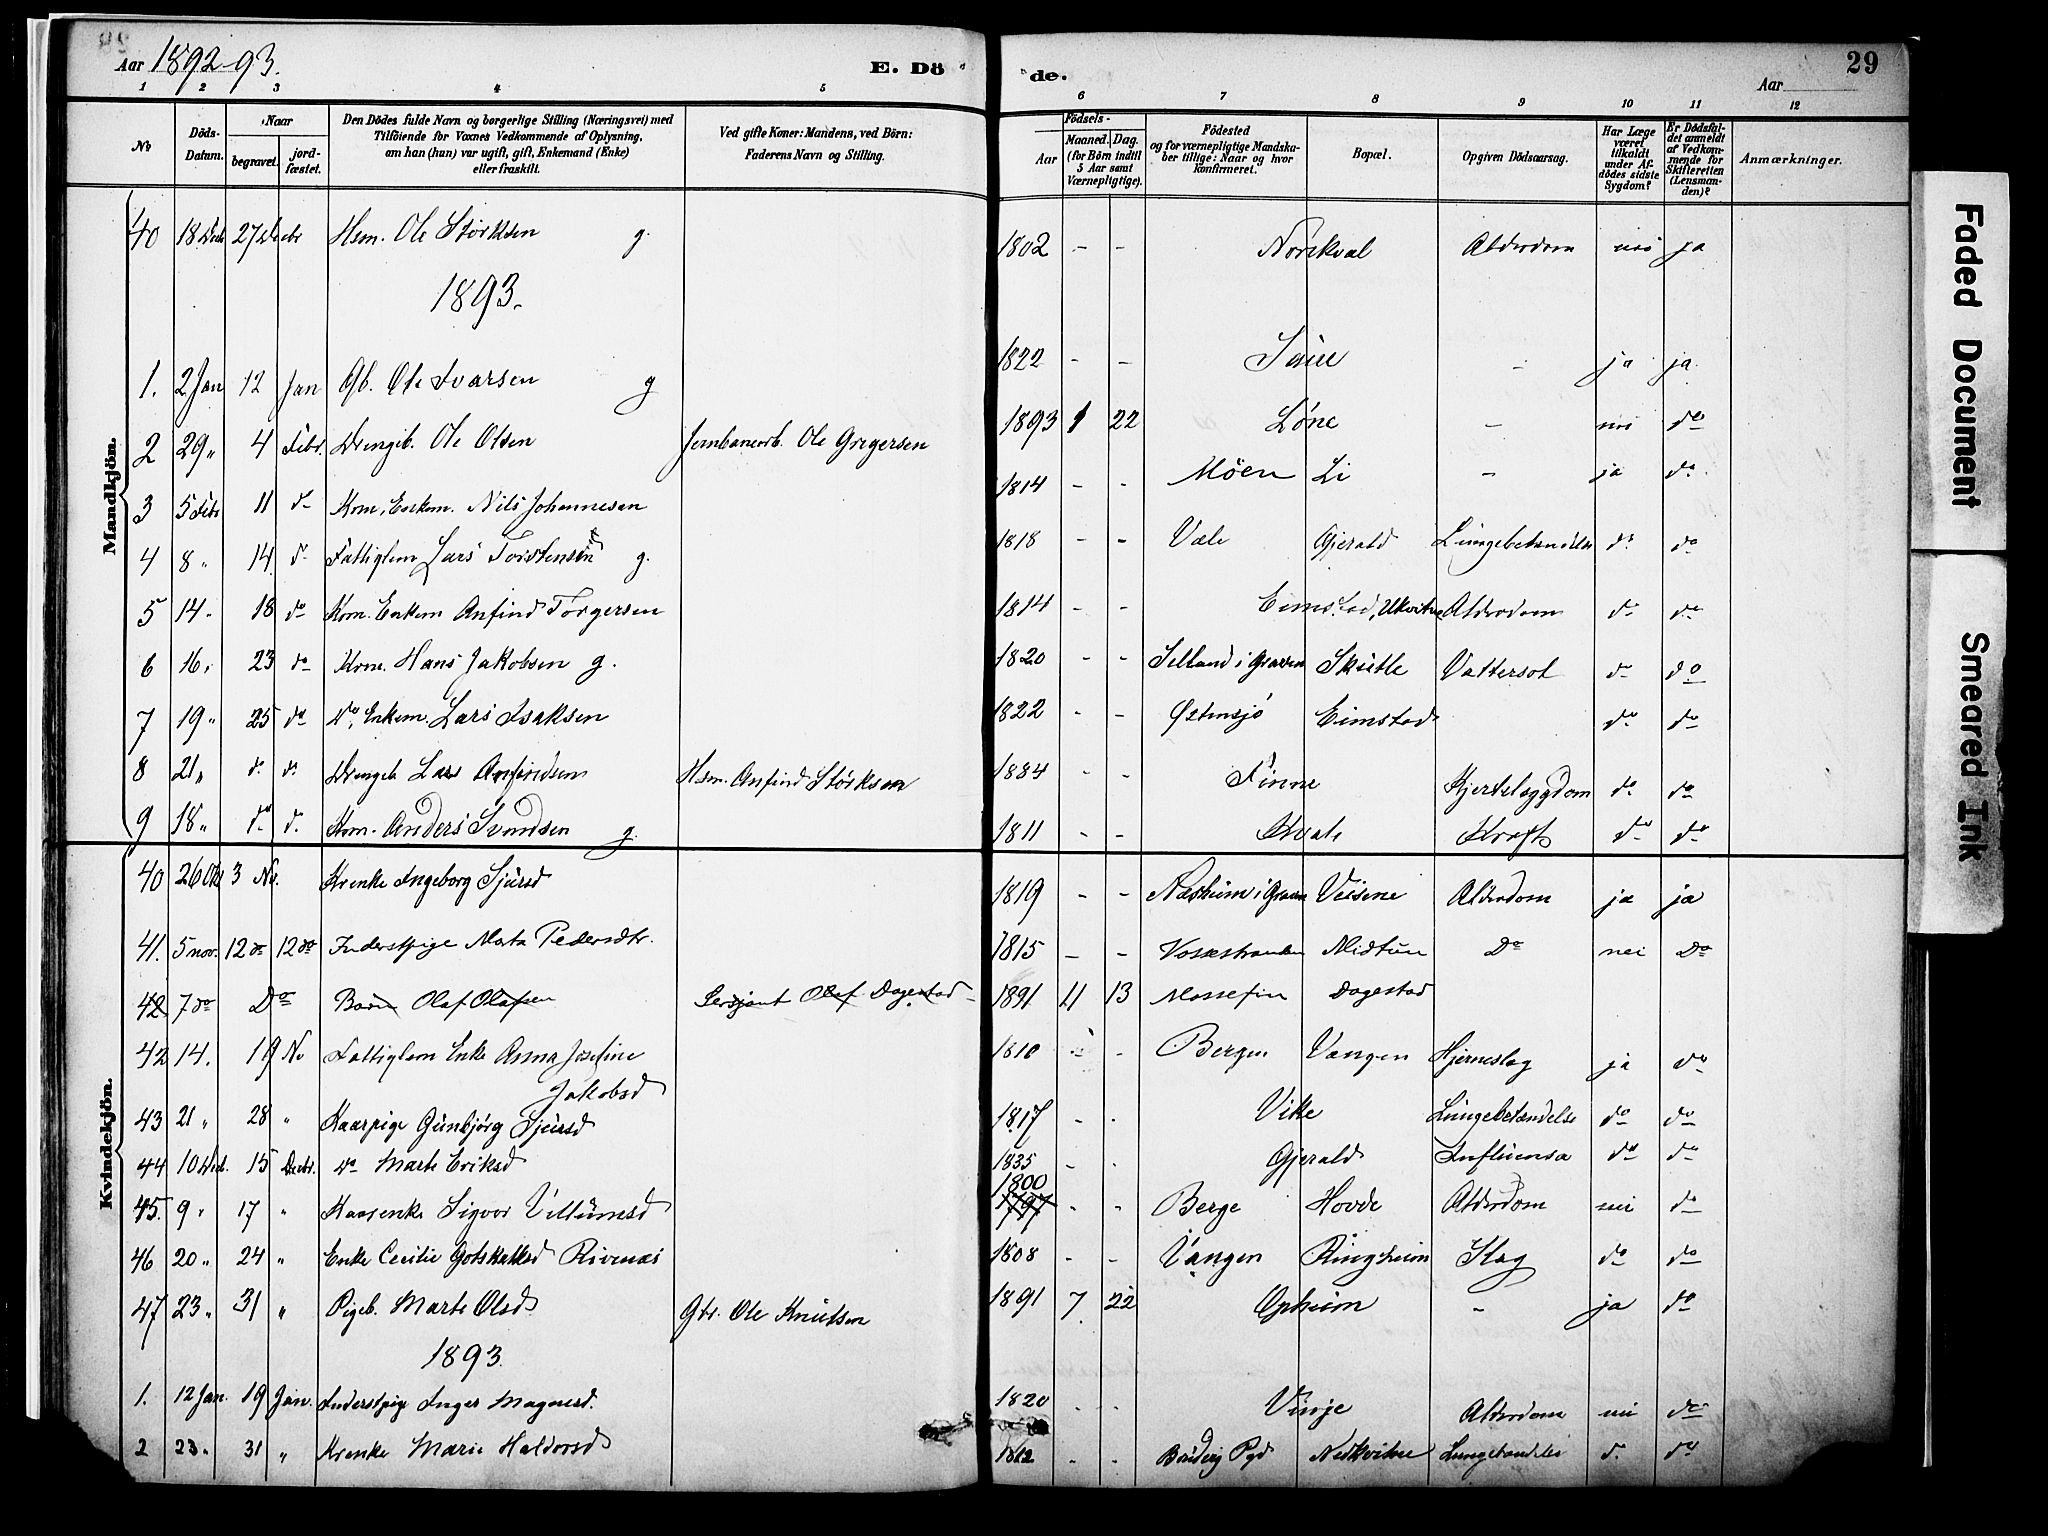 Aar 1892-93.
E. Döde.
29
Aar
1 2 3 4 5 6 7 8 9 10 11 12
No
Döds-Datum.
Naar
begravet.
jord-fæstet.
Den Dödes fulde Navn og borgerlige Stilling (Næringsvei) med
Tilföiende for Voxnes Vedkommende af Oplysning,
om han (hun) var ugift, gift, Enkemand (Enke)
eller fraskilt.
Ved gifte Koner: Mandens, ved Börn:
Faderens Navn og Stilling.
Födsels-
Aar
Maaned. Dag.
(for Börn indtil
5 Aar samt
Værnepligtige).
Födested
og for værnepligtige Mandska-
ber tillige: Naar og hvor
konfirmeret.
Bopæl.
Opgiven Dödsaarsag.
Har Læge
været
tilkaldt
under Af-
dödes sidste
Sygdom?
Er Dödsfal-
det anmeldt
af Vedkom-
mende for
Skifteretten
(Lensman-
den)?
Anmærkninger.
Mandkjön.
40 18 Decb 27 Decbr Hsm. Ole Størksen g. 1802 - - Norekval Alderdom nei ja
1893.
1. 2 Jan 12 Jan Gb. Ole Ivarsen g 1822 - - - ja ja.
2 29 " 4 Febr. Drengeb. Ole Olsen Jernbanearb. Ole Gregersen 1893 1 22 Løne - nei do
3 5 Febr 11 do Kom. Enkem. Nils Johannesen 1814 - - Möen Li - ja do
4 8 " 14 do Fattiglem Lars Torstensen g. 1818 - - Væle Gjerald Lungebetændelse do do
5 14 " 18 do Kom. Enkem Anfind Torgersen 1814 - - Eimstad, Ukvitne Alderdom do do
6 16 " 23 do Kom. Hans Jakobsen g. 1820 - - Selland i Graven Skutle Vattersot do do
7 19 " 25 do Do, Enkem. Lars Isaksen 1822 - - Østensjö Eimstad do do
8 21 " do do Drengeb Lars Anfindsen Hsm. Anfind Størksen 1884 - - Finne Hjertesygdom do do
9 18 " do do Kom. Anders Svendsen g. 1811 - - Kvale Kræft do do
Kvindekjön.
40 26 Okt 3 Nv. Krenke Ingeborg Sjursd 1819 - - Næsheim i Graven Veisene Alderdom ja ja
41. 5 nov. 12 do 12 do Inderstpige Marta Pedersdtr. 1815 - - Vossestranden Midtun Do nei Do
42 7 do Do Barn Olaf Olafsen Sersjant Olaf Dagestad 1891 11 13 Mossefin Dagestad
42 14. 19 Nv Fattiglem Enke Anna Josefine Jakobsd 1810 - - Bergen Vangen Hjerneslag ja do
43 21 " 28 " Kaarpige Gunbjørg Sjursd 1817 - - Vike Lungebetændelse do do
44 10 Decb. 15 Decbr. do Marte Eriksd 1835 - - Gjerald Influensa do do
45. 9 " 17 " Kaarenke Sigvor Villumsd 1800 1797 - - Berge Hovde Alderdom nei do
46 20 " 24 " Enke Cecilie Gotskalksd Rivenæs 1808 - - Vangen Ringheim Slag do do
47 23 " 31 " Pigeb. Marte Olsd Gbr. Ole Knutsen 1891 7 22 Opheim - ja do
1893.
1. 12 Jan. 19 Jan. Inderstpige Inger Magnesd. 1820 - - Vinje Alderdom nei do
2 23 " 31 " Krenke Marie Haldorsd 1812 - - Pgd Nedkvitne do do
Faded Document
Smeared Ink